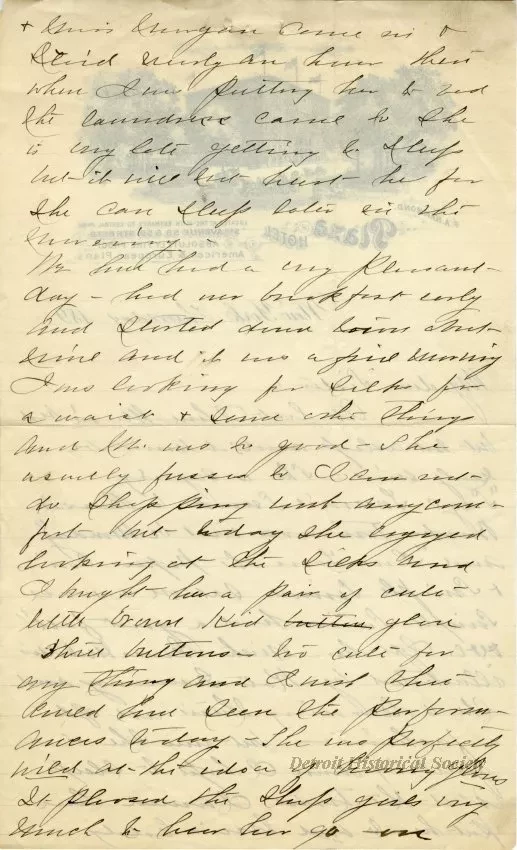 + Miss Morgan came in &
staid nearly an hour then
when I was putting her to bed
the laundress came so she
is very late getting to sleep
but it will not hurt her for
she can sleep later in the
morning.
We have had a very pleasant
day - had our breakfast early
and started down town about
nine and it was a fine morning
I was looking for silks for
a waist & some other things
and she was so good - She
usually fusses so I can not
do shopping with any com-
fort but today she enjoyed
looking at the silks and
I bought her a pair of cute
little brown kid button glove
three buttons - too cute for
any thing and I wish that
could have seen the perform-
ances today - She was perfectly
wild at the idea of having gloves
It pleased the shop girls very
much to hear her go on
Plaza
HOTEL
American & European Plans
New York
Detroit Historical Society